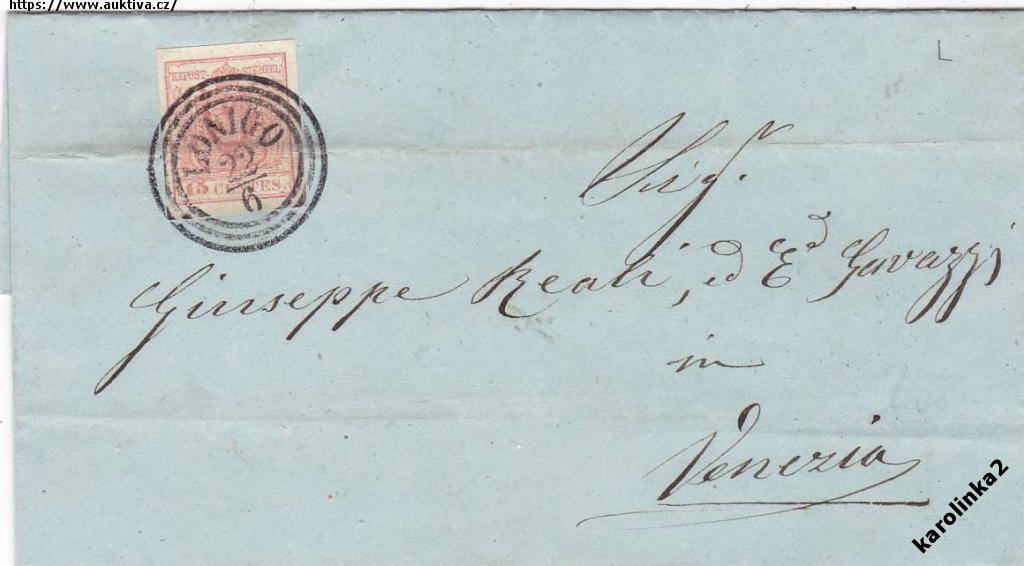 https://www.auktiva.cz/
L
KKPOST-STEMPEL
15 CENTES.
LONIGO
22
6
Sig.r
Giuseppe Reali, ed Ed Gavazzi
in
Venezia
karolinka2